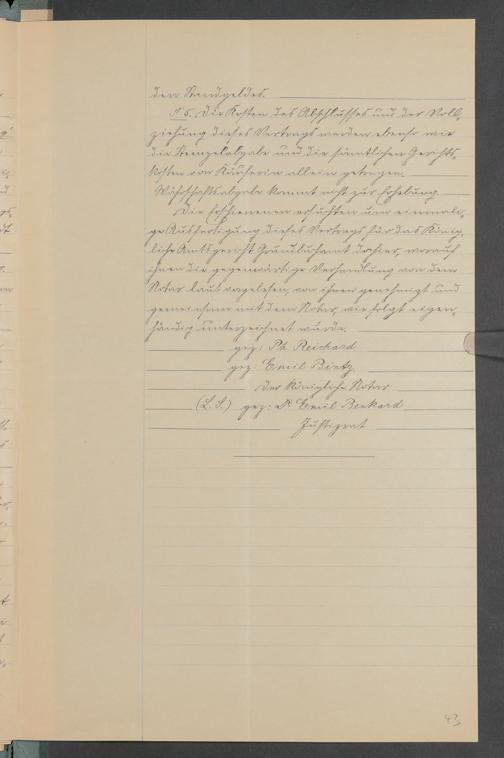 den Standgeldes.
§ 5. Die Kosten des Abschlusses und der Voll-
ziehung dieses Vertrags werden ebenso wie
die Stempelabgabe und die sämtlichen Gerichts-
kosten von Käuferin allein getragen.
Währschaftsabgabe kommt nicht zur Erhebung.
Die Erschienenen ersuchten um einmali-
ge Ausfertigung dieses Vertrags für das König-
liche Amtsgericht Grundbuchamt dahier, worauf
ihnen die gegenwärtige Verhandlung von dem
Notar laut vorgelesen, von ihnen genehmigt und
gemeinsam mit dem Notar, wie folgt eigen-
händig unterzeichnet wurde.
gez: Ph. Reichard
gez: Emil Bintz
Der Königliche Notar
(L.S.) gez: Dr Emil Benkard
Justizrat
43